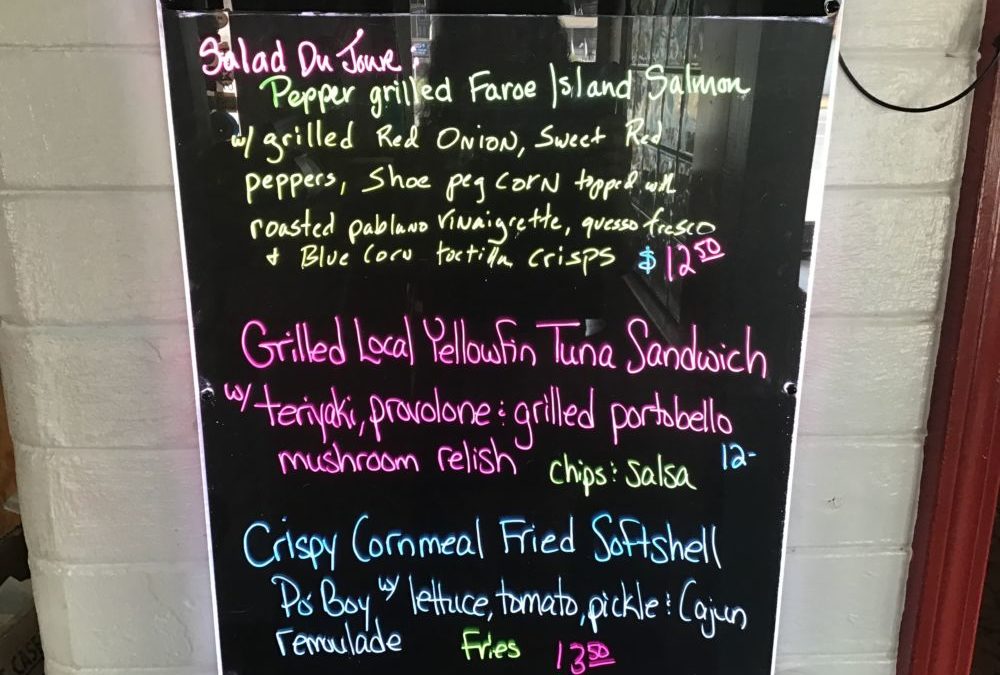 Salad Du Joure
Pepper grilled Faroe Island Salmon
w/ grilled Red Onion, Sweet Red
peppers, Shoe peg corn topped with
roasted pablano vinaigrette, quesso fresco
+ Blue Corn tortilla crisps $12.50
Grilled Local Yellowfin Tuna Sandwich
w/ teriyaki, provolone & grilled portobello
mushroom relish chips & salsa 12-
Crispy Cornmeal Fried Softshell
Po' Boy w/ lettuce, tomato, pickle & Cajun
remoulade Fries 13.50